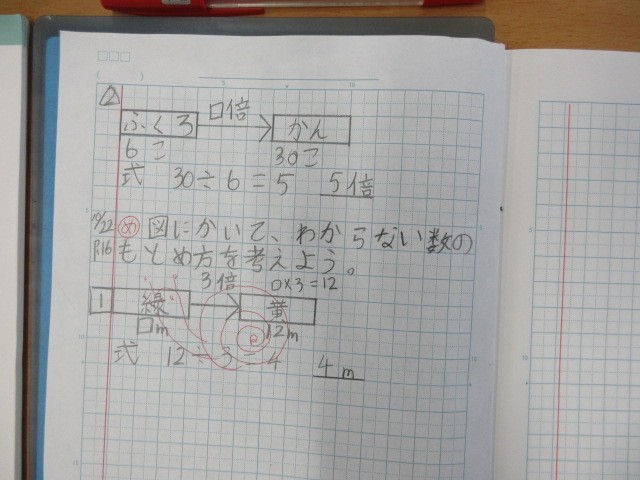 ② □倍
ふくろ かん
6こ 30こ
式 30÷6=5 5倍
め 図にかいて、わからない数の
P.16 もとめ方を考えよう。
3倍 □×3=12
1 線 黄
□m 12m
式 12÷3=4 4m